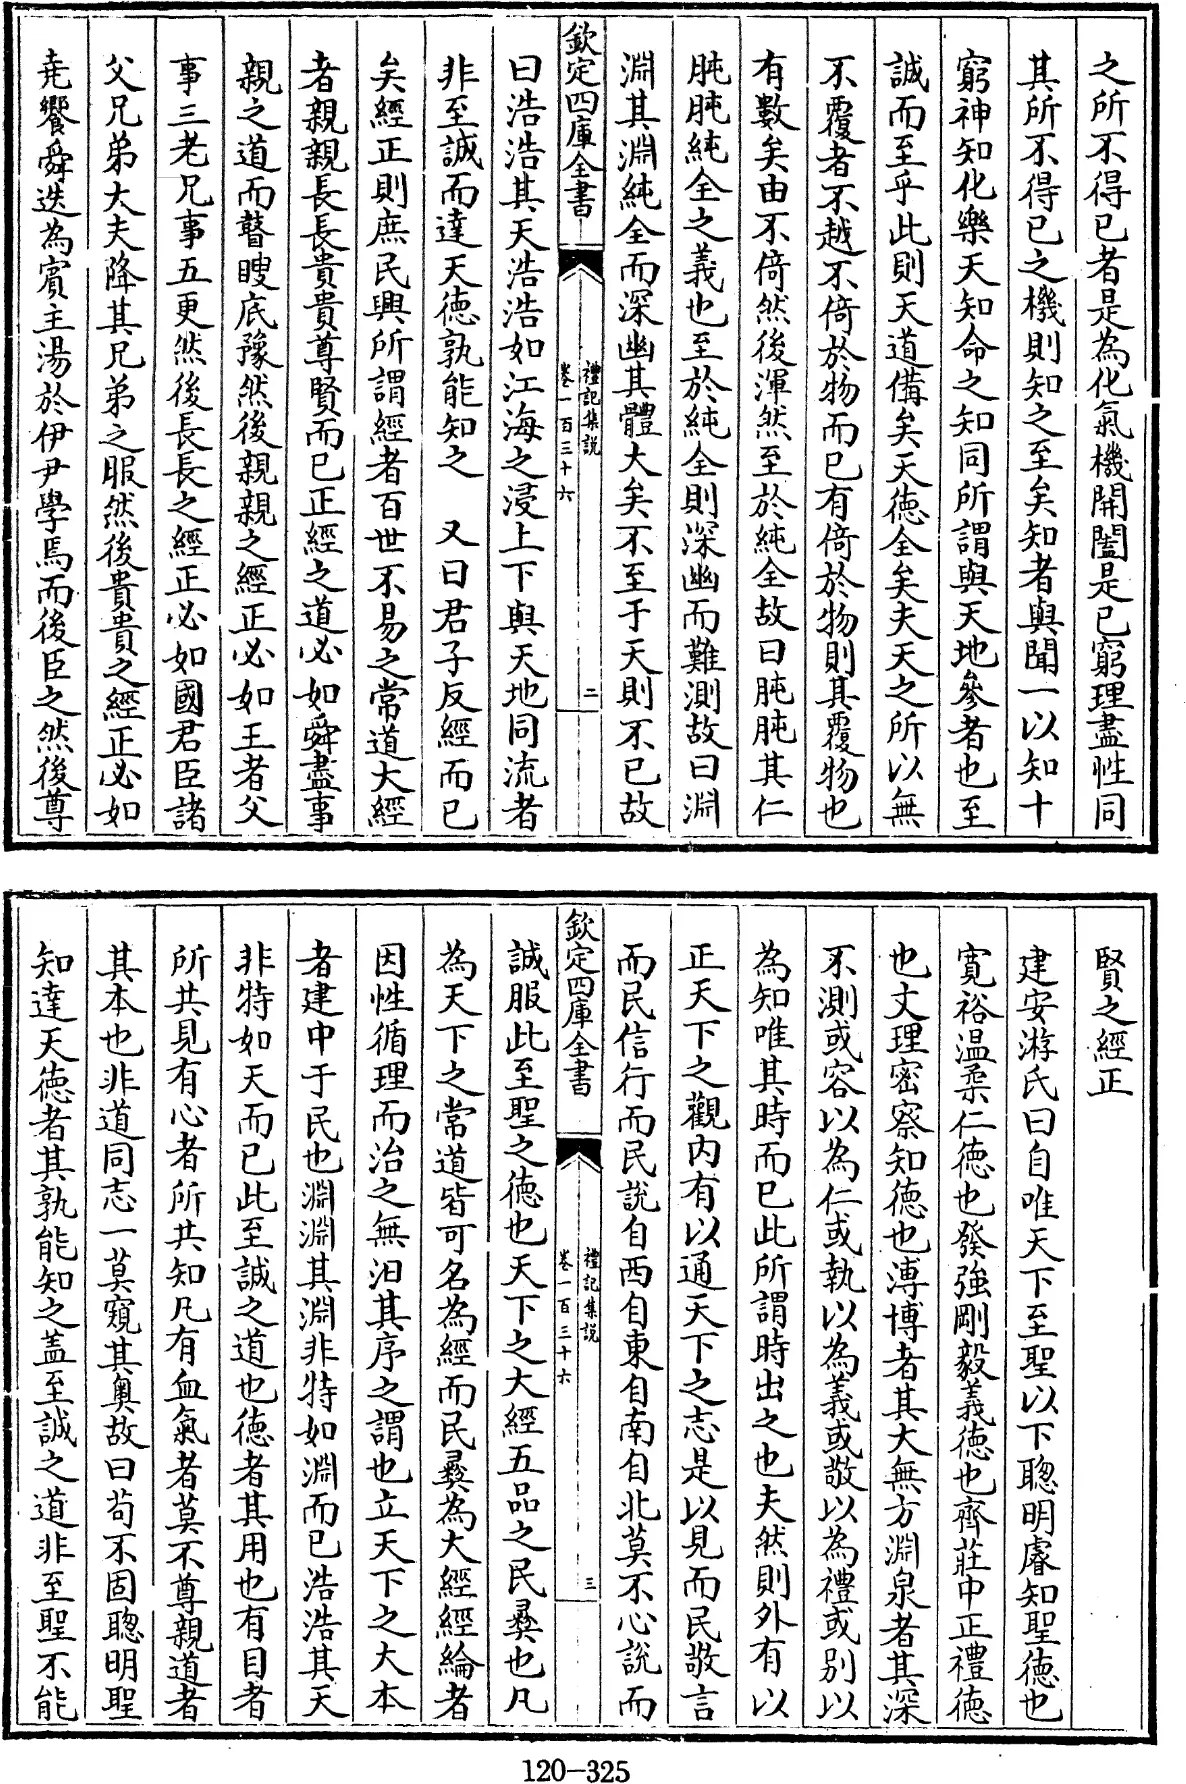 之所不得已者是為化氣機開闔是已窮理盡性同
其所不得已之機則知之至矣知者與聞一以知十
窮神知化樂天知命之知同所謂與天地參者也至
誠而至乎此則天道備矣天德全矣夫天之所以無
不覆者不越不倚於物而已有倚於物則其覆物也
有數矣由不倚然後渾然至於純全故曰肫肫其仁
肫肫純全之義也至於純全則深幽而難測故曰淵
淵其淵純全而深幽其體大矣不至于天則不已故
欽定四庫全書
禮記集說
卷一百三十六
二
曰浩浩其天浩浩如江海之浸上下與天地同流者
非至誠而達天德孰能知之 又曰君子反經而已
矣經正則庶民興所謂經者百世不易之常道大經
者親親長長貴貴尊賢而已正經之道必如舜盡事
親之道而瞽瞍底豫然後親親之經正必如王者父
事三老兄事五更然後長長之經正必如國君臣諸
父兄弟大夫降其兄弟之服然後貴貴之經正必如
堯饗舜迭為賓主湯於伊尹學焉而後臣之然後尊
賢之經正
建安游氏曰自唯天下至聖以下聰明睿知聖德也
寬裕溫柔仁德也發強剛毅義德也齊莊中正禮德
也文理密察知德也溥博者其大無方淵泉者其深
不測或容以為仁或執以為義或敬以為禮或別以
為知唯其時而已此所謂時出之也夫然則外有以
正天下之觀內有以通天下之志是以見而民敬言
而民信行而民說自西自東自南自北莫不心說而
欽定四庫全書
禮記集說
卷一百三十六
三
誠服此至聖之德也天下之大經五品之民彝也凡
為天下之常道皆可名為經而民彝為大經經綸者
因性循理而治之無汩其序之謂也立天下之大本
者建中于民也淵淵其淵非特如淵而已浩浩其天
非特如天而已此至誠之道也德者其用也有目者
所共見有心者所共知凡有血氣者莫不尊親道者
其本也非道同志一莫窺其奧故曰苟不固聰明聖
知達天德者其孰能知之蓋至誠之道非至聖不能
120-325